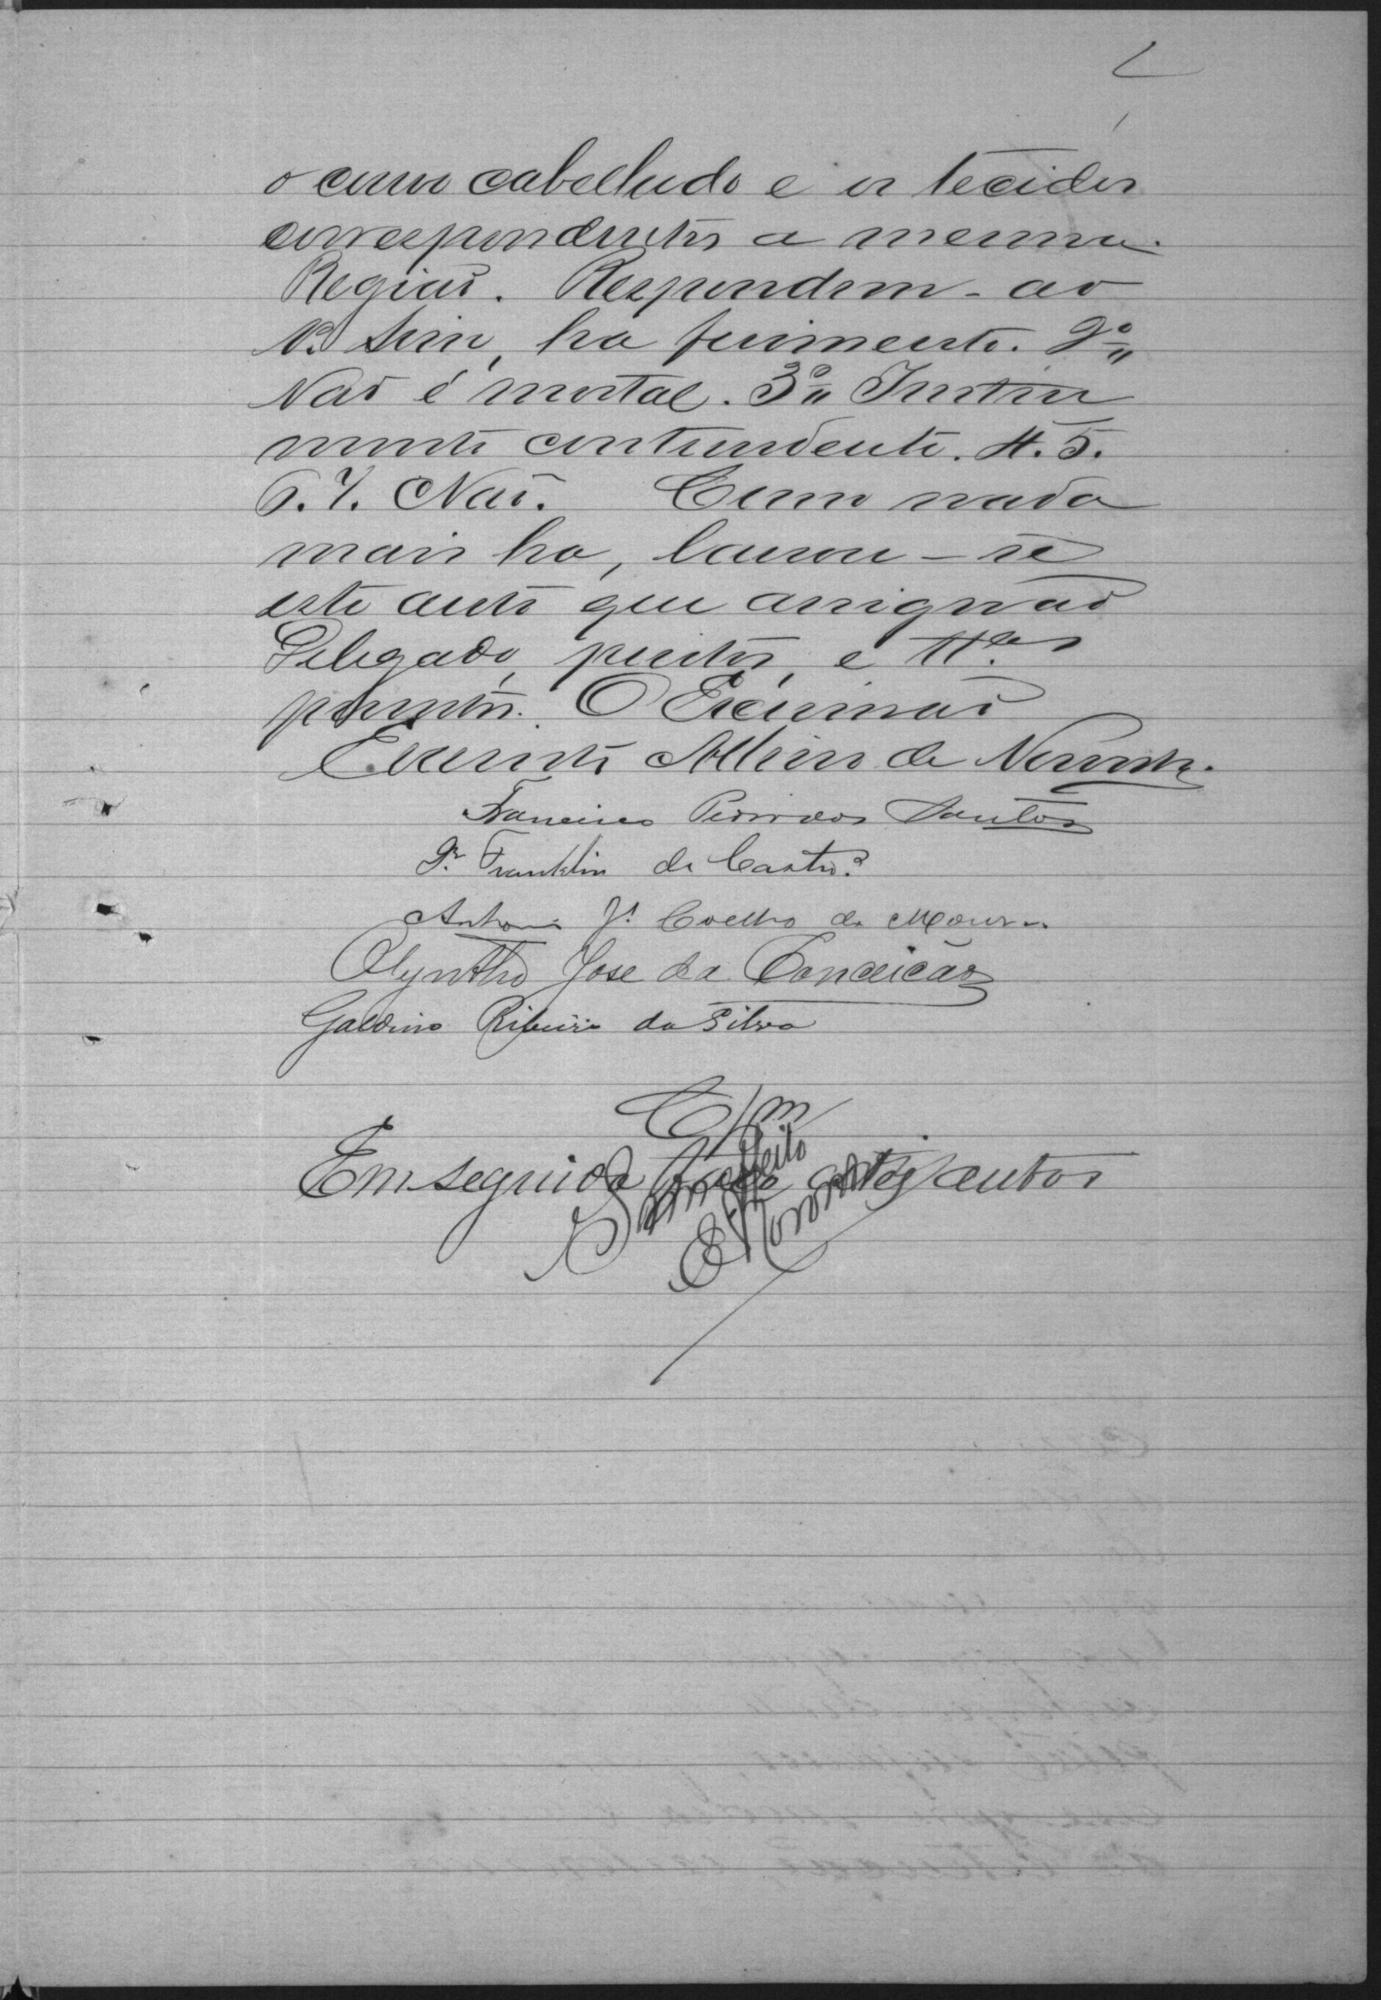 o couro cabelludo e os tecidos
correspondentes a mesma
Região. Respondem - ao
1º. Sim, ha ferimento. 2º
Não é mortal. 3º Instru
mento contundente. 4. 5.
6. 7. Não. Como nada
mais ha, lavrou-se
este auto que assignão
Delegado, peritos, e ttas
presentes. O Escrivão
Evaristo de
Francisco dos Santos
Dr. Franklin de Castro.
Antonio Je. Coelho de Moura
Olyntho José da Conceição
Galdino Ribeiro da Silva
Em seguida faço estes autos